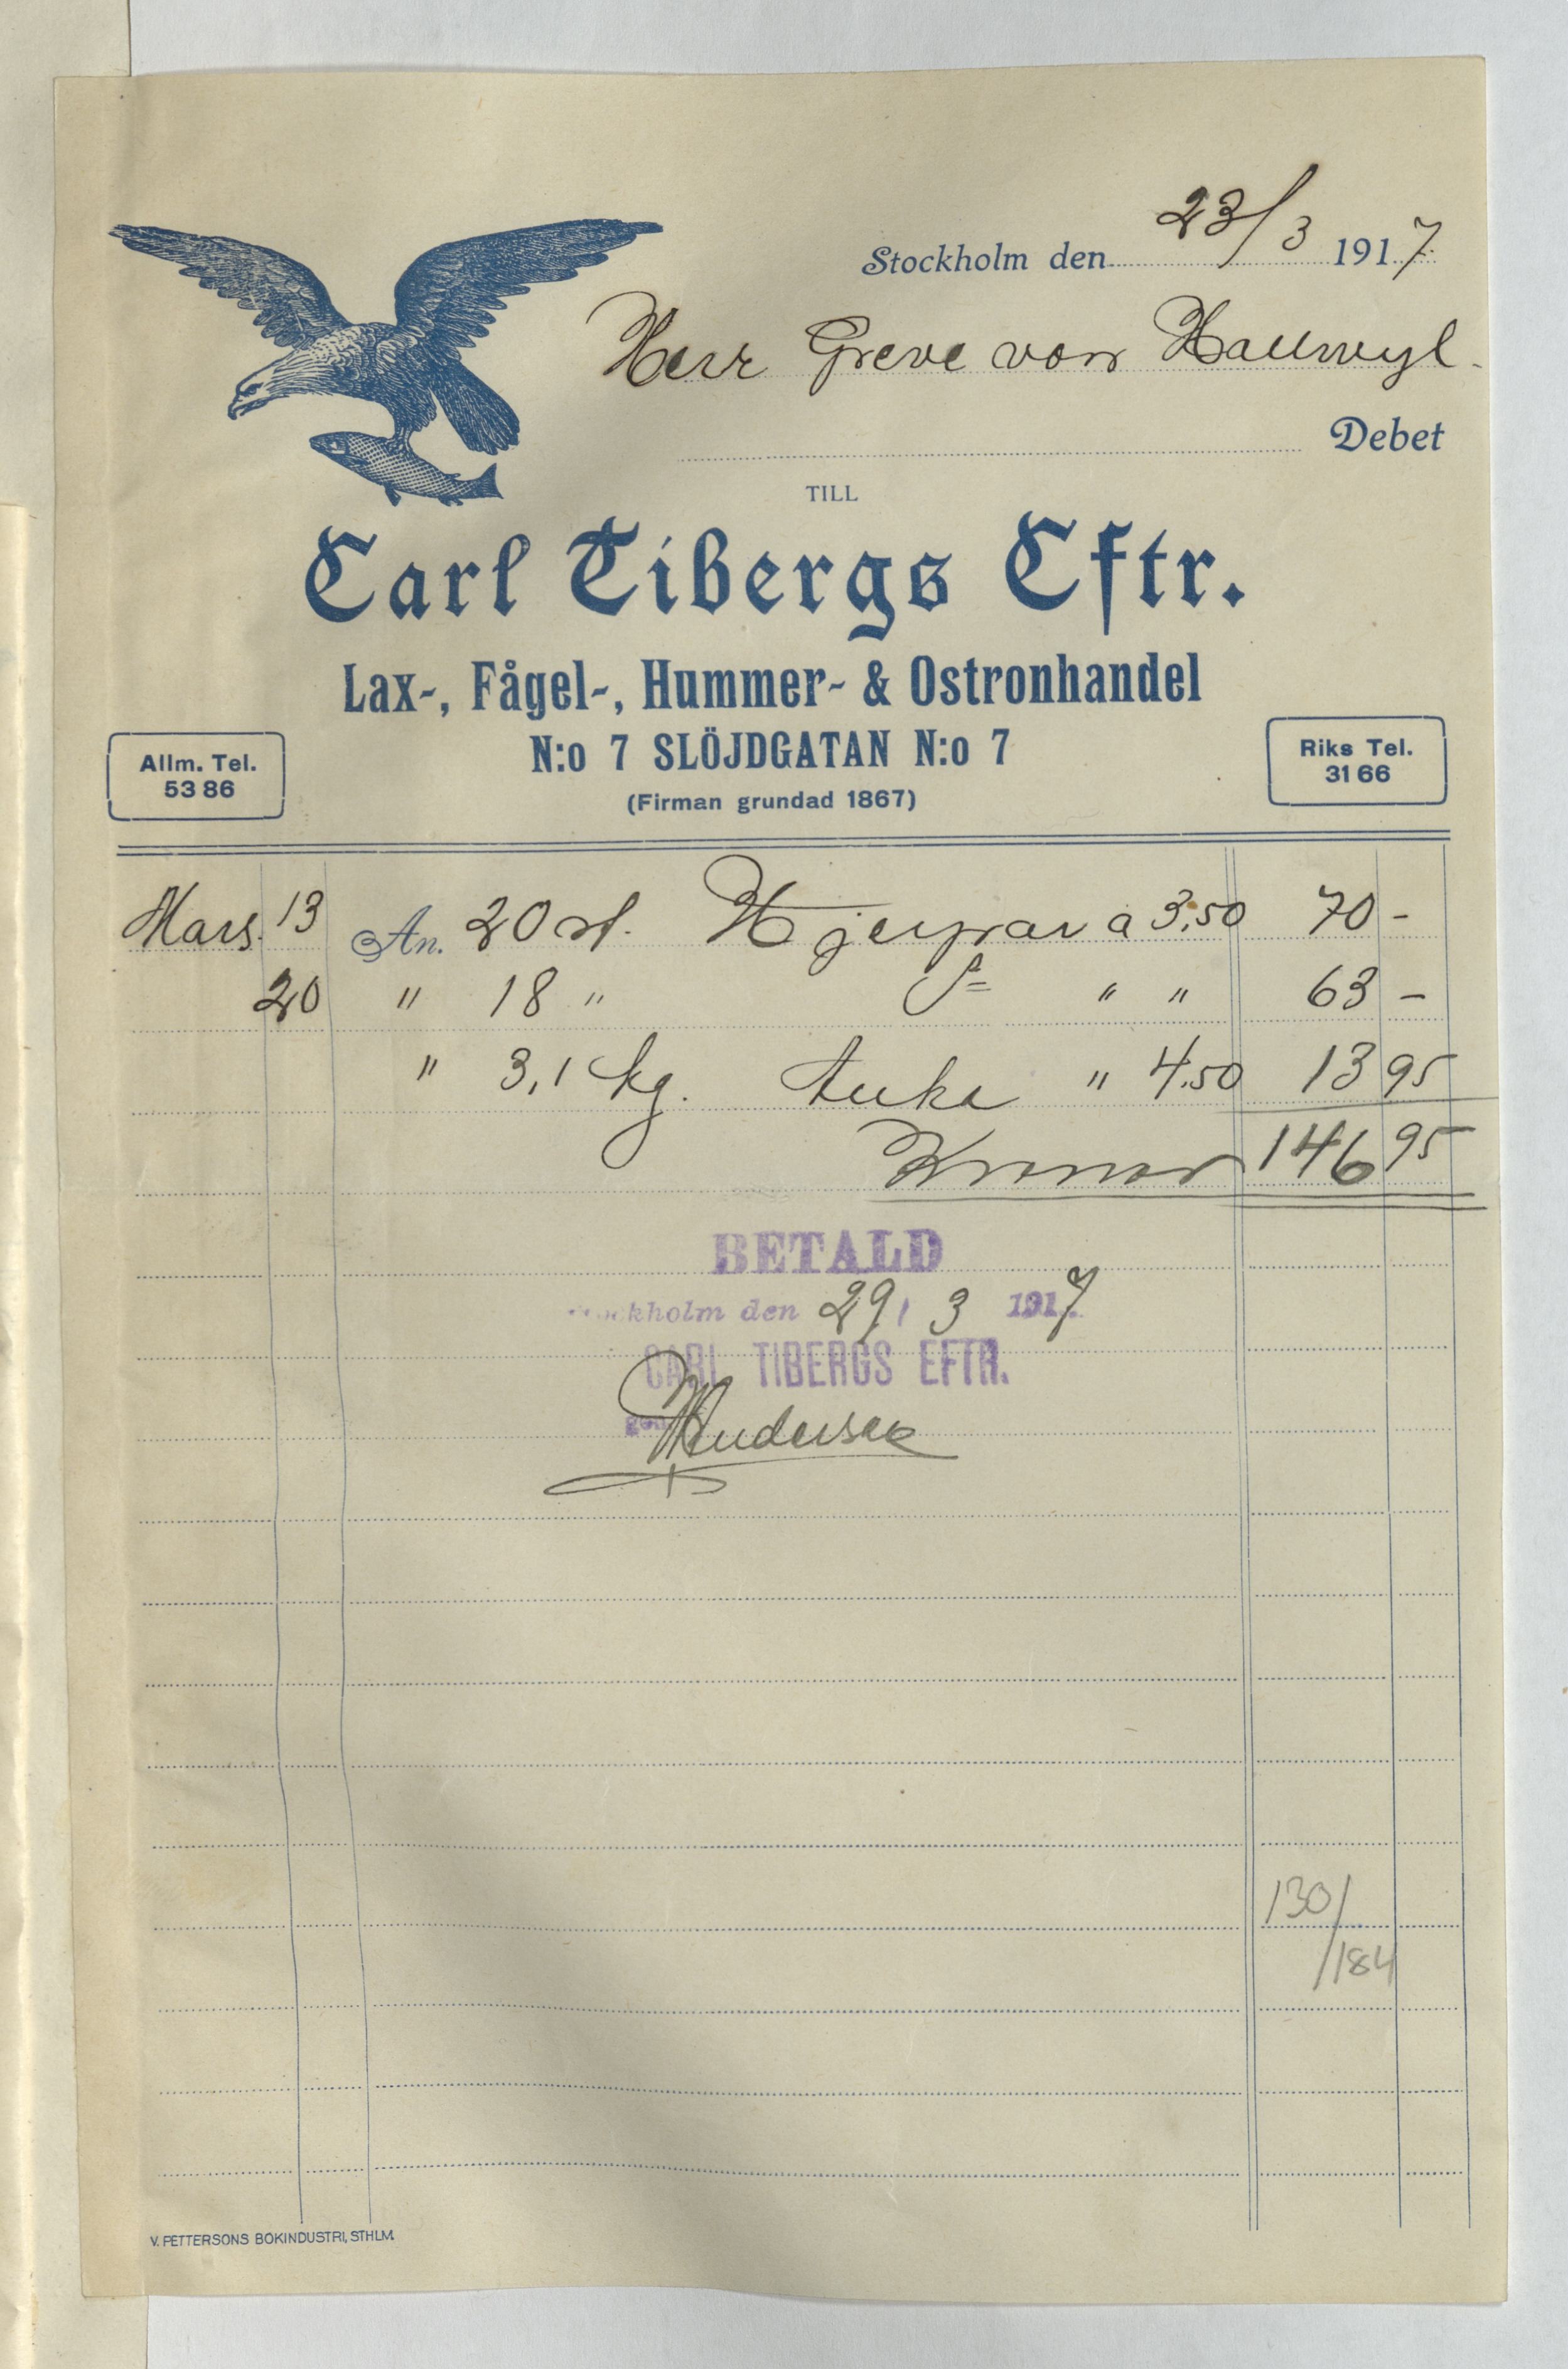 Stockholm den 23/3 1917.
Herr Greve von Hallwyl.
Debet
TILL
Carl Tibergs Eftr.
Lax-, Fågel-, Hummer- & Ostronhandel
N:o 7 SLÖJDGATAN N:o 7
(Firman grundad 1867)
Allm. Tel.
53 86
Riks Tel.
31 66
Mars. 13 An. 20 st. Hjerpar a 3,50 70 -
20 " 18 " " " 63 -
" 3,1 kg. Anka " 4,50 13 95
Kronor 146 95
BETALD
Stockholm den 29/3 1917
CARL TIBERGS EFTR.
130/
/184
V. PETTERSONS BOKINDUSTRI, STHLM.